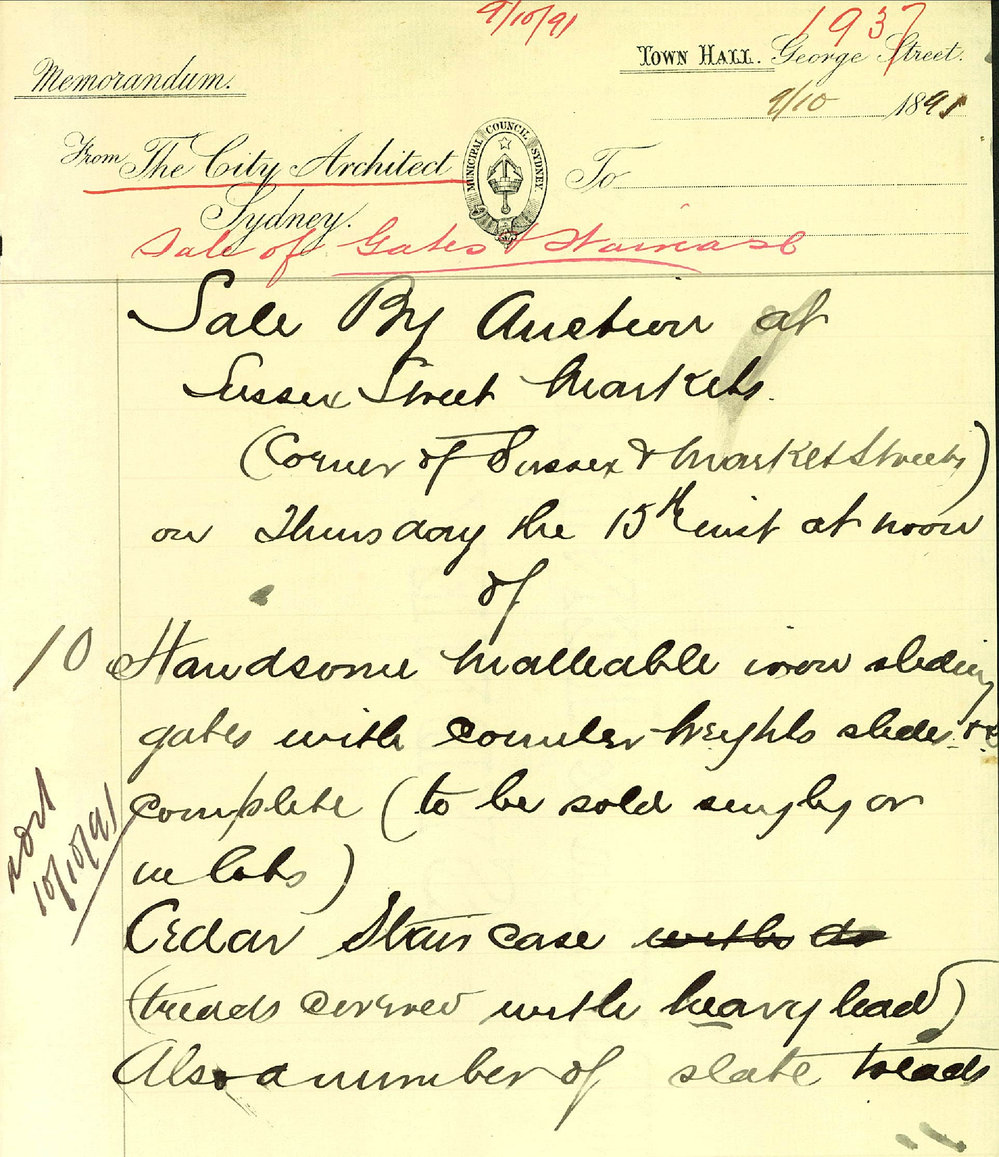 9/10/91
1937
TOWN HALL. George Street.
Memorandum.
9/10 1891
From The City Architect
Sydney.
MUNICIPAL COUNCIL SYDNEY.
To
Sale of Gates & Staircase
Sale By Auction at
Sussex Street Markets.
(Corner of Sussex & Market Streets)
on Thursday the 15th inst at noon
of
10 Handsome Malleable iron sliding
gates with counter weights slides &c
complete (to be sold singly or
in lots)
10/10/91
Cedar Staircase with do
(treads covered with heavy lead)
Also a number of slate treads